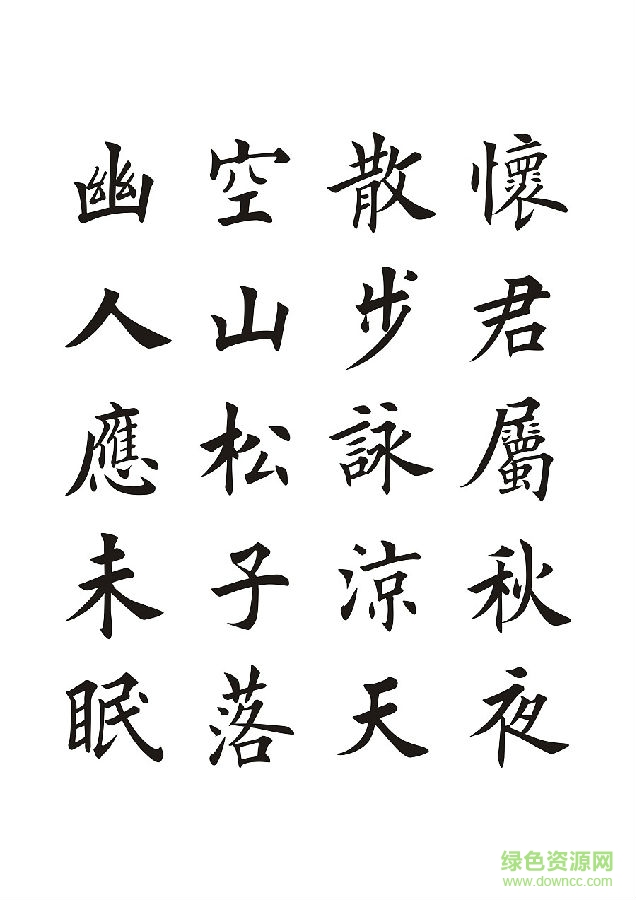 懷君屬秋夜
散步詠涼天
空山松子落
幽人應未眠
绿色资源网
www.downcc.com